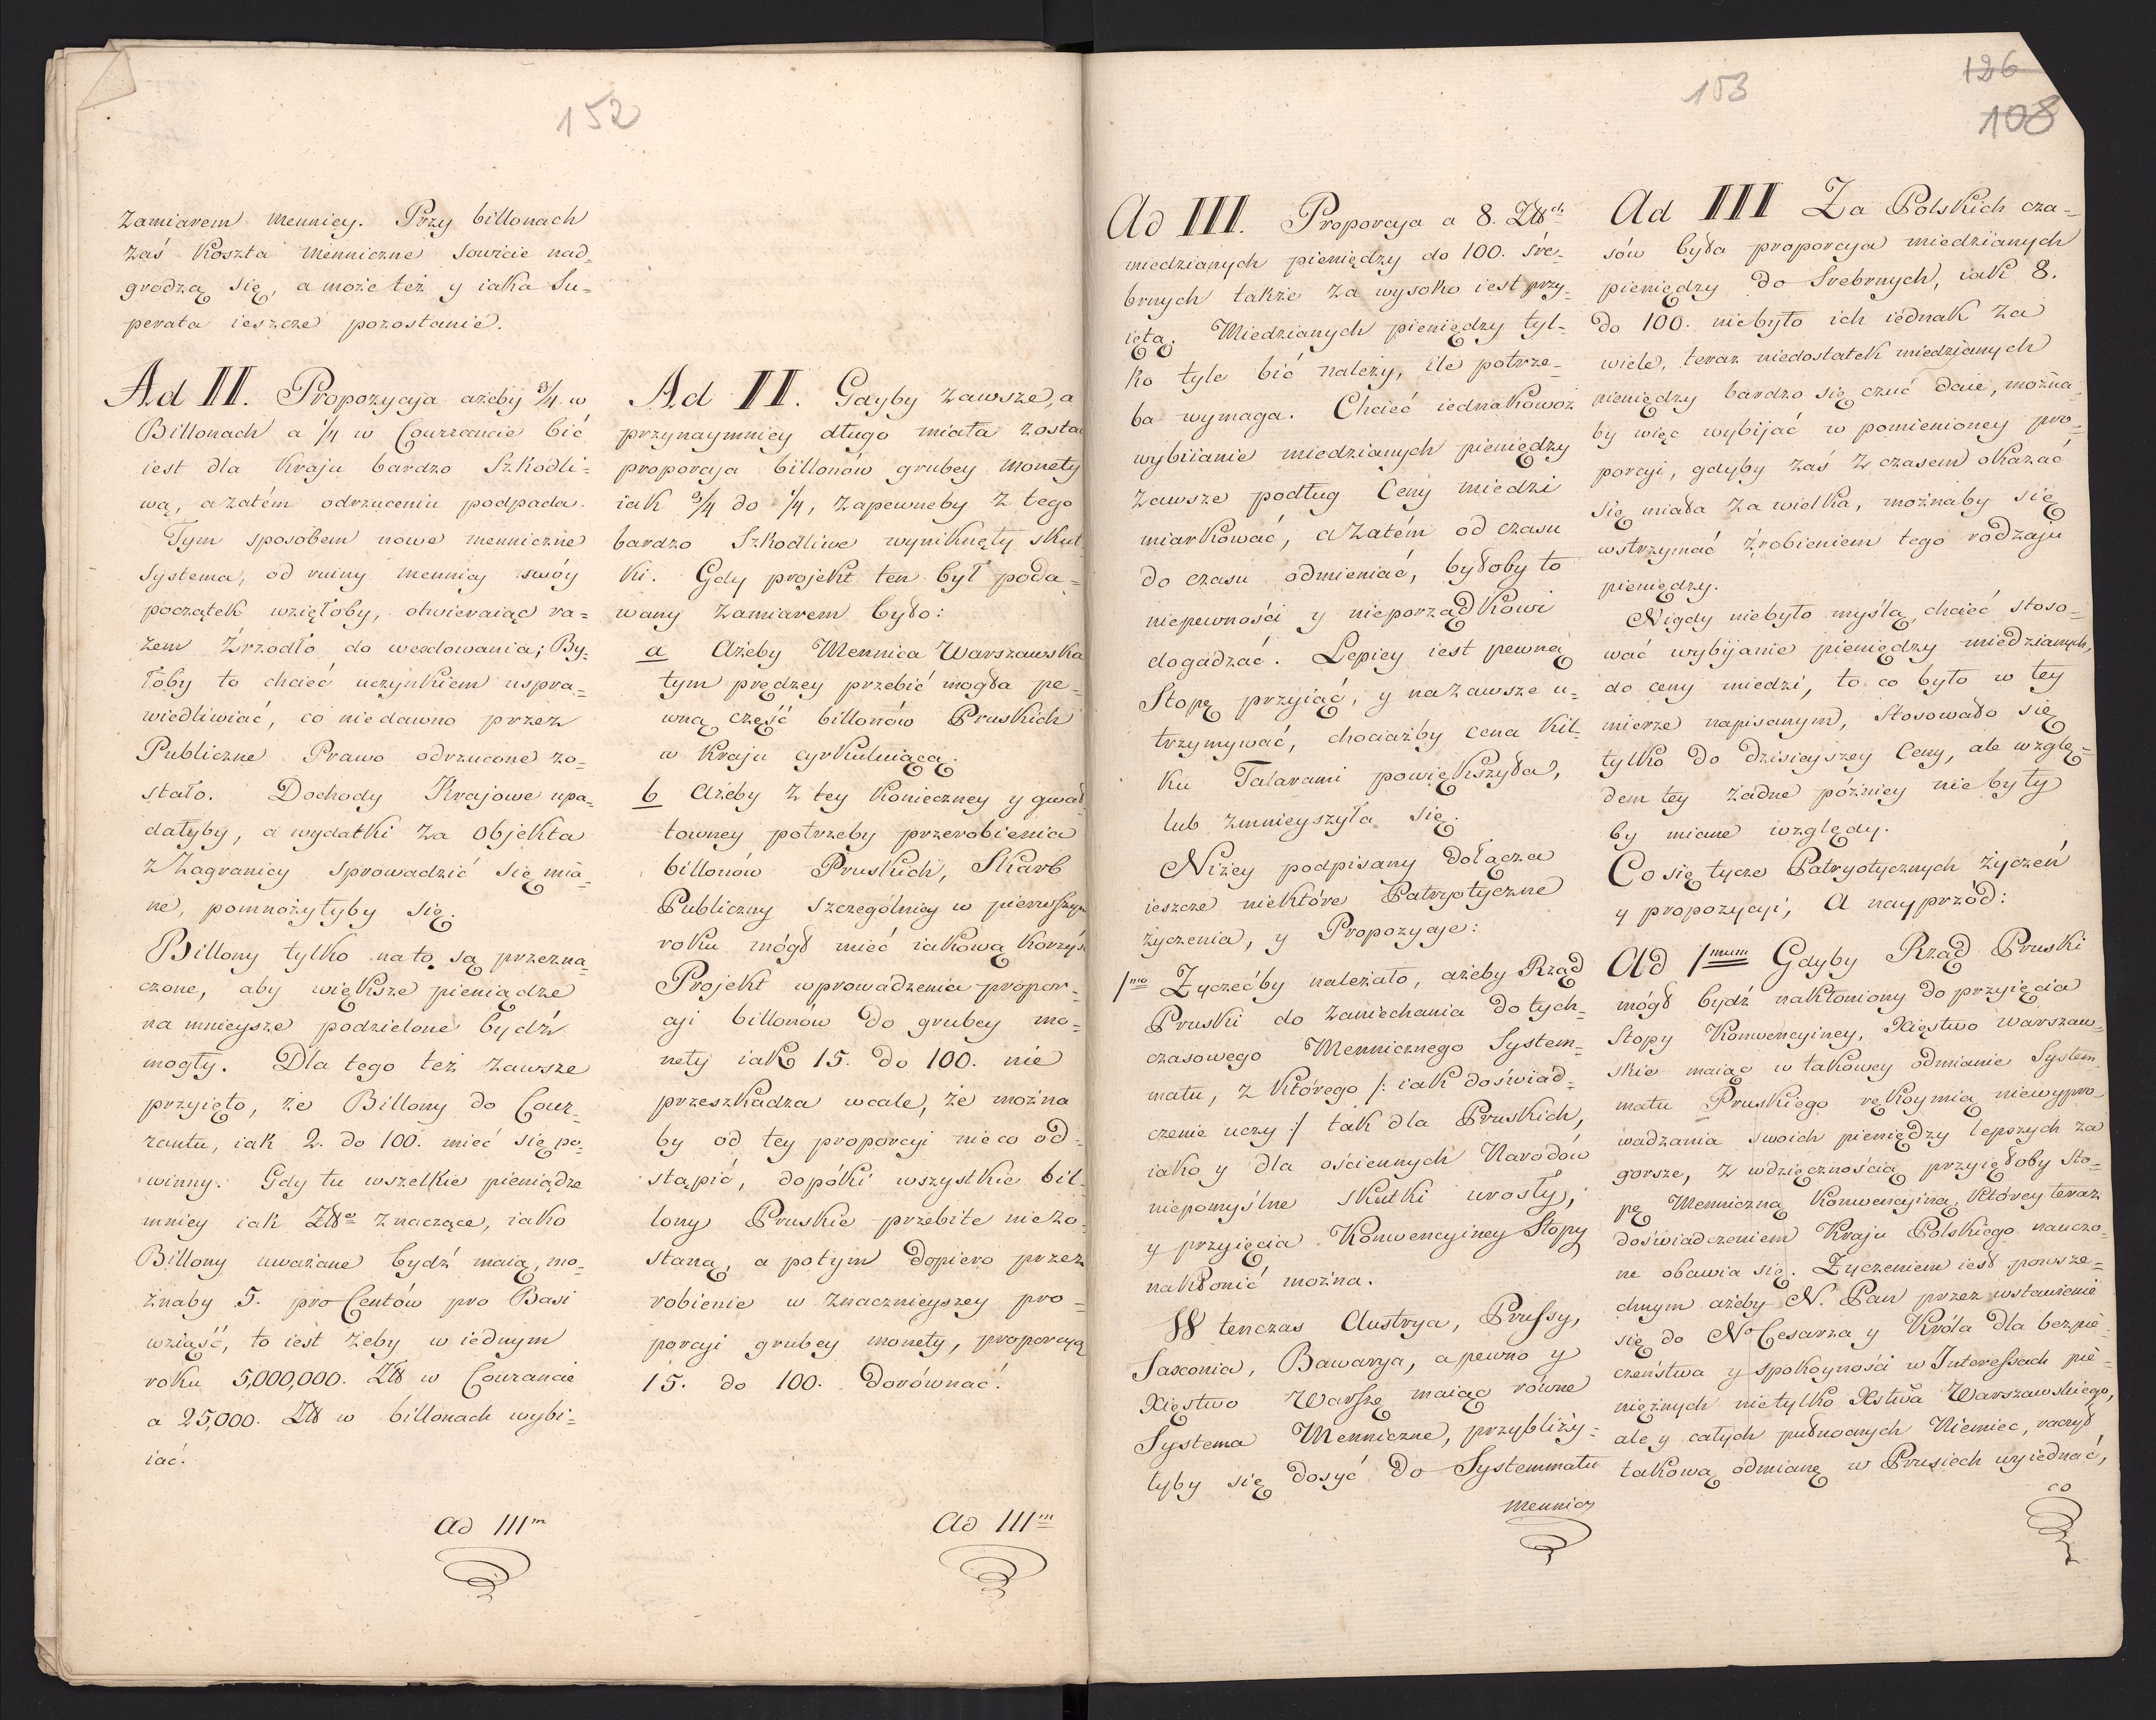 152
zamiarem mennicy. Przy billonach
zaś koszta menniczne sowicie nad=
grodzą się, a może też y iaka Su=
perata ieszcze pozostanie.
Ad II. Propozycyja ażeby 3/4 w
Billonach a 1/4 w Courrancie bić
iest dla kraju bardzo Szkodli=
wą, a zatém odrzuceniu podpada.
Tym sposobem nowe menniczne
Systema, od ruiny mennicy swóy
początek wzięłoby, otwieraiąc ra=
zem źrzodło do wexlowania; By=
łoby to chcieć uczynkiem uspra=
wiedliwiać, co niedawno przez
Publiczne Prawo odrzucone zo=
stało. Dochody Krajowe upa=
dałyby, a wydatki za Objekta
z Zagranicy sprowadzić się mia=
ne, pomnożyłyby się.
Billony tylko na to są przezna=
czone, aby większe pieniądze
na mnieysze podzielone bydź
mogły. Dla tego też zawsze
przyięto, że Billony do Cour=
rantu, iak 2. do 100. mieć się po=
winny. Gdy tu wszelkie pieniądze
mniey iak Złło znaczące, iako
Billony uważane bydź maią, mo=
żnaby 5. pro Centów pro Basi
wziąść, to iest żeby w iednym
roku 5,000,000. Złł w Courancie
a 25,000. Złł w billonach wybi=
iać.
Ad IIIm
Ad II. Gdyby zawsze, a
przynaymniey długo miała zosta
proporcyja billonów grubey monety
iak 3/4 do 1/4, zapewneby z tego
bardzo Szkodliwe wyniknęły skut=
ki. Gdy projekt ten był poda=
wany zamiarem było:
a Ażeby Mennica Warszawska
tym prędzey przebić mogła pe=
wną część billonów Pruskich
w kraju cyrkuluiącą.
b Ażeby z tey konieczney y gwał
towney potrzeby przerobienia
billonów Pruskich, Skarb
Publiczny szczególniey w pierwszym
roku mógł mieć iakową korzyś
Projekt wprowadzenia propor=
cyi billonów do grubey mo=
nety iak 15. do 100. nie
przeszkadza wcale, że można
by od tey proporcyi nieco od=
stąpić, dopóki wszystkie bil=
lony Pruskie przebite niezo=
staną, a potym dopiero przez
robienie w znacznieyszey pro=
porcyi grubey monety, proporcyą
15. do 100. dorównać.
Ad IIIm
153
126
108
Ad III. Proporcyja a 8. Złłch
miedzianych pieniędzy do 100. śre=
brnych także za wysoko iest przy=
iętą. Miedzianych pieniędzy tyl=
ko tyle bić należy, ile potrze=
ba wymaga. Chcieć iednakowoż
wybiianie miedzianych pieniędzy
zawsze podług Ceny miedzi
miarkować, a zatém od czasu
do czasu odmieniać, byłoby to
niepewności y nieporządkowi
dogadzać. Lepiey iest pewną
Stopę przyiąć, y na zawsze u=
trzymywać, chociażby cena kil=
ku Talarami powiększyła,
lub zmnieyszyła się.
Niżey podpisany dołącza
ieszcze niektóre Patryotyczne
życzenia, y Propozycyje:
1mo Życzećby należało, ażeby Rząd
Pruski do zaniechania do tych=
czasowego Mennicznego System=
matu, z którego /: iak doświad=
czenie uczy :/ tak dla Pruskich,
iako y dla ościennych Narodów
niepomyślne skutki urosły,
y przyięcia Konwencyiney Stopy
nakłonić można.
W tenczas Austrya, Prussy,
Saxonia, Bawarya, a pewno y
Xięstwo Warszę maiąc równe
Systema Menniczne, przybliży=
łyby się dosyć do Systemmatu
mennicz
Ad III Za Polskich cza=
sów była proporcyja miedzianych
pieniędzy do Srebrnych, iak 8.
do 100. niebyło ich iednak za
wiele, teraz niedostatek miedzianych
pieniędzy bardzo się czuć daie, można
by więc wybijać w pomienioney pro=
porcyi, gdyby zaś z czasem okazać
się miała za wielka, możnaby się
wstrzymać z robieniem tego rodzaju
pieniędzy.
Nigdy niebyło myślą, chcieć stoso=
wać wybijanie pieniędzy miedzianych,
do ceny miedzi, to co było w tey
mierze napisanym, Stosowało się
tylko do dzisieyszey Ceny, ale wzglę=
dem tey żadne późniey nie były
by miane względy.
Co się tycze Patryotycznych życzeń
y propozycyi, A nayprzód:
Ad 1mum Gdyby Rząd Pruski
mógł bydź nakłoniony do przyięcia
Stopy Konwencyiney, Xięstwo Warszaw=
skie maiąc w takowey odmianie System
matu Pruskiego rękoymią niewypro=
wadzania swoich pieniędzy lepszych za
gorsze, z wdzięcznością przyięłoby sto=
pę Menniczną Konwencyiną, którey teraz
doświadczeniem Kraju Polskiego nauczo=
ne obawia się. Życzeniem iest powsze=
chnym ażeby N. Pan przez wstawienie
się do No Cesarza y Króla dla bezpie=
czeństwa y spokoyności w Interessach pie=
niężnych nietylko Xstwa Warszawskiego,
ale y całych pułnocnych Niemiec, raczył
takową odmianę w Prusiech wyiednać,
co